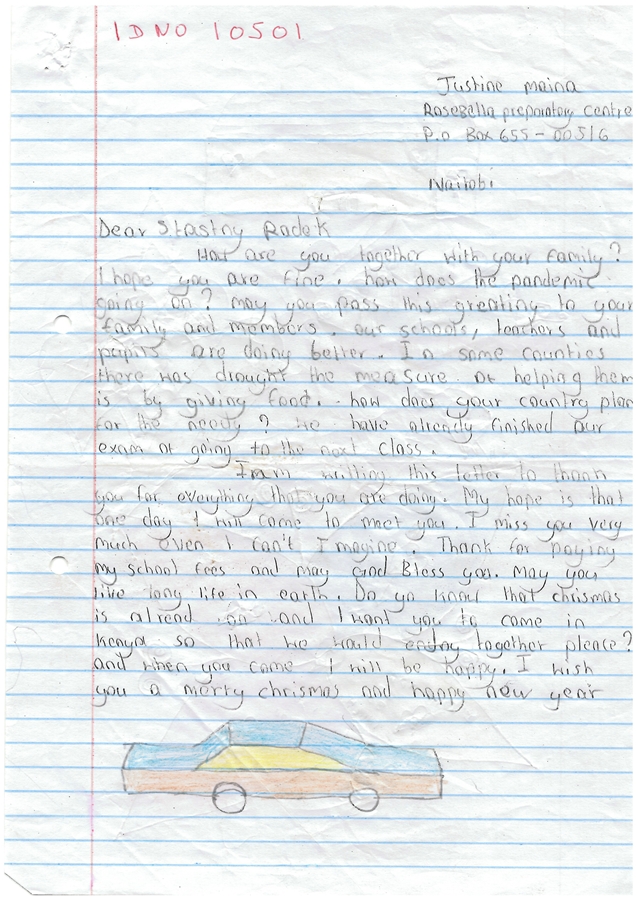 IDNO 10501
Justine maina
Rosebella preparatory centre
P.o Box 655-00516
Nairobi
Dear Stastny Radek
How are you together with your family?
I hope you are fine. how does the pandemic
going on? may you pass this greating to your
family and members. our schools, teachers and
pupils are doing better. In some counties
there was drought the measure of helping them
is by giving food. how does your country plan
for the needy? We have already finished our
exam of going to the next class.
I am writting this letter to thank
you for everything that you are doing. My hope is that
one day I will come to meet you. I miss you very
much even I can't Imagine. Thank for paying
my school fees and may God Bless you. May you
live long life in earth. Do yo know that chrismas
is alread on and I want you to come in
Kenya so that we would enjoy together please?
and when you come I will be happy. I wish
you a merry chrismas and happy new year